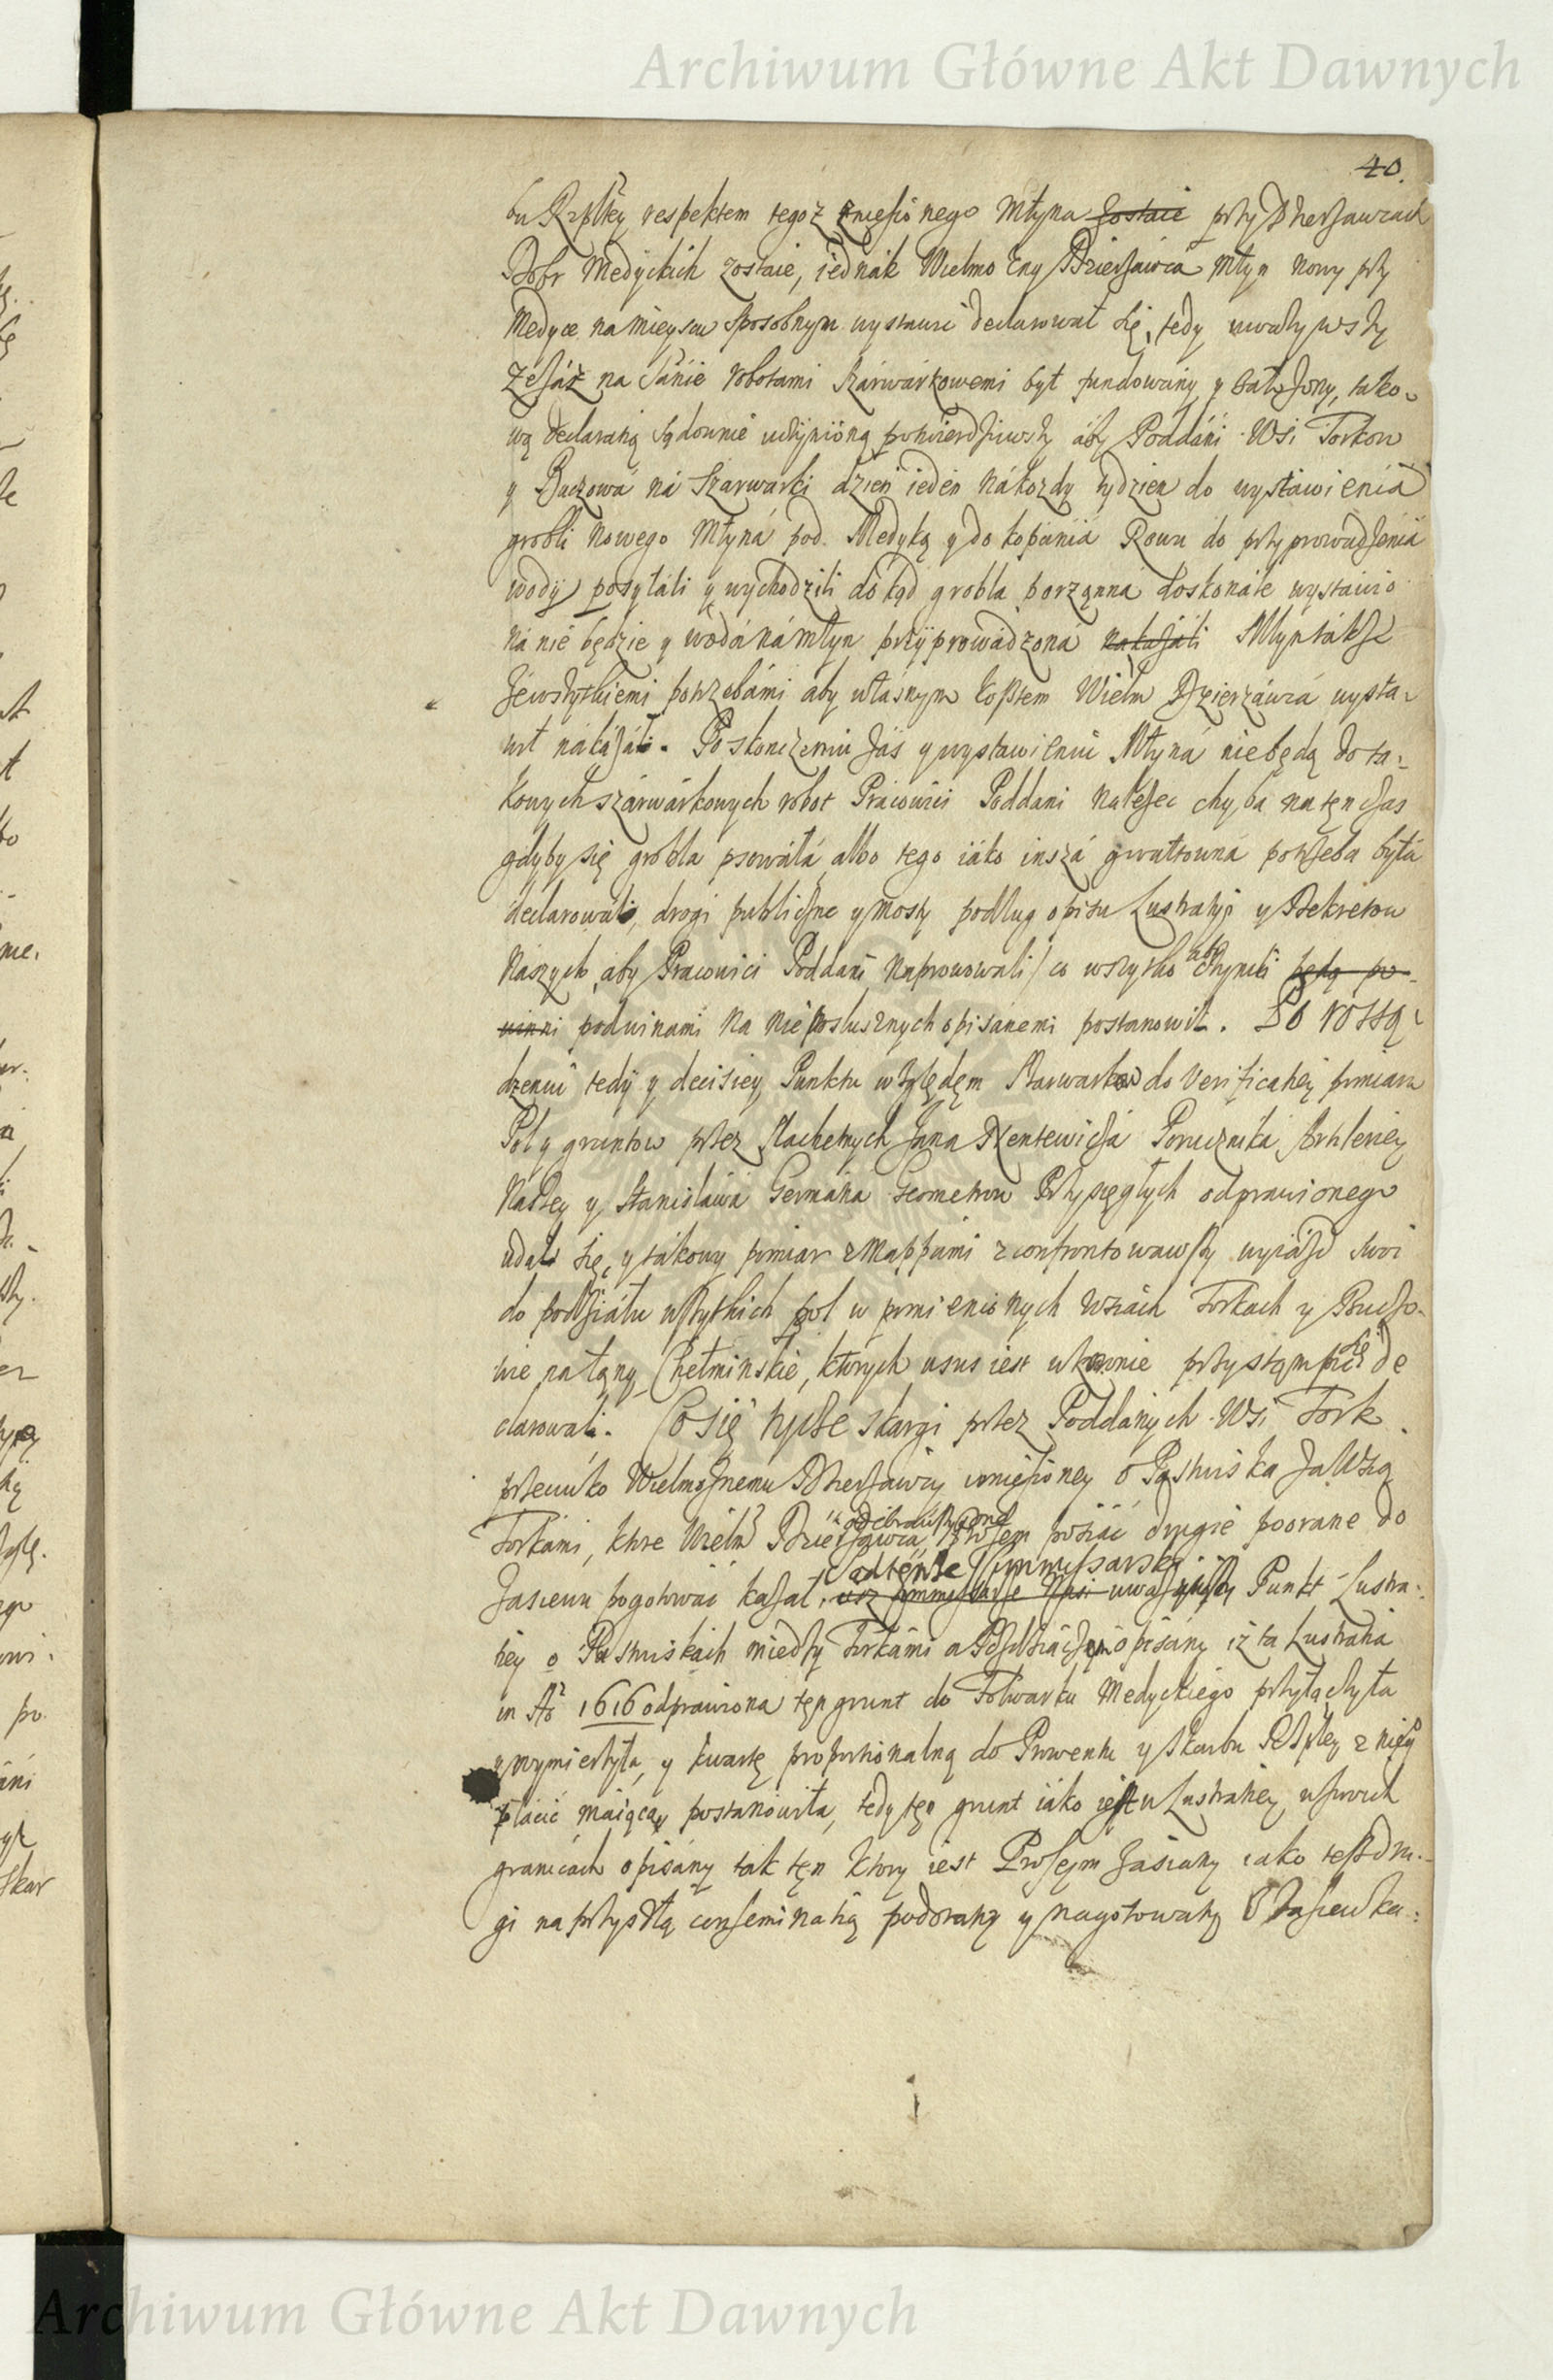 Archiwum Główne Akt Dawnych
40.
bu Rzpltey respektem tegoż zniesionego Młyna zostaie przy Dzierżawcach
Dobr Medyckich zostaie, iednak Wielmożny Dzierżawca Młyn nowy przy
Medyce na mieyscu sposobnym wystawić declarował się, tedy uważywszy
że iaz na Sanie robotami szarwarkowemi był fundowany y założony, tako-
wą declaratią sądownie uczynioną potwierdziwszy aby Poddani Wsi Torkow
y Buczowa na szarwarki dzień ieden na kożdy tydzień do wystawienia
grobli nowego Młyna pod Medyką y do kopania Rowu do przyprowadzenia
wody posyłali y wychodzili dokąd grobla porządna doskonale wystawio
na nie będzie y woda na młyn przyprowadzona nakazali Młyn także
ze wszytkiemi potrzebami aby własnym kosztem Wielm Dzierzawca wysta-
wił nakazali. Po skonczeniu zaś y wystawieniu Młyna nie będą do ta-
kowych szarwarkowych robot Pracowici Poddani należec chyba na ten czas
gdyby się grobla psowała albo tego iako insza gwałtowna potrzeba była
declarowali, drogi publiczne y mosty podług opisu Lustratyi y Dekretow
Naszych aby Pracowici Poddani naprawowali co wszytko aby czynili będą po-
winni pod winami na nieposłusznych opisanemi postanowił. Po rozsą-
dzeniu tedy y decisiey Punktu względem szarwarkow do Verificatiey pomiaru
Pol y gruntow przez Szlachetnych Jana Porucznika Artleriey
Naszey y Stanisława Germana Geometrow Przysięgłych odprawionego
udali się, y takowy pomiar z Mappami zconfrontowawszy wyiazd swoi
do podziału wszytkich pol w pomienionych wsiach Torkach y Buczo-
wie na łany Chełminskie, ktorych usus iest w przystąmpić de
clarowali. Co się tycze skargi przez Poddanych Wsi Tork
przeciwko Wielmożnemu Dzierżawcy wniesioney o Pastwiska za Wsią
Torkami, ktore Wielm Dzierżawca, Prosem posiać drugie poorane do
Zasiewu pogotować kazał, uwazywszy Punkt Lustra-
tiey o Pastwiskach między Torkami a opisany iż ta Lustratia
in Ao 1616 odprawiona ten grunt do Folwarku Medyckiego przyłączyła
y wymierzyła, y kwartę proportionalną do Prowentu y skarbu Rzpltey z niey
płacić maiącą postanowiła, tedy ten grunt iako iest w Lustratiey w swoich
granicach opisany tak ten ktory iest Prosem zasiany iako też dru-
gi na przyszłą conseminatią podorany y nagotowany
Archiwum Główne Akt Dawnych